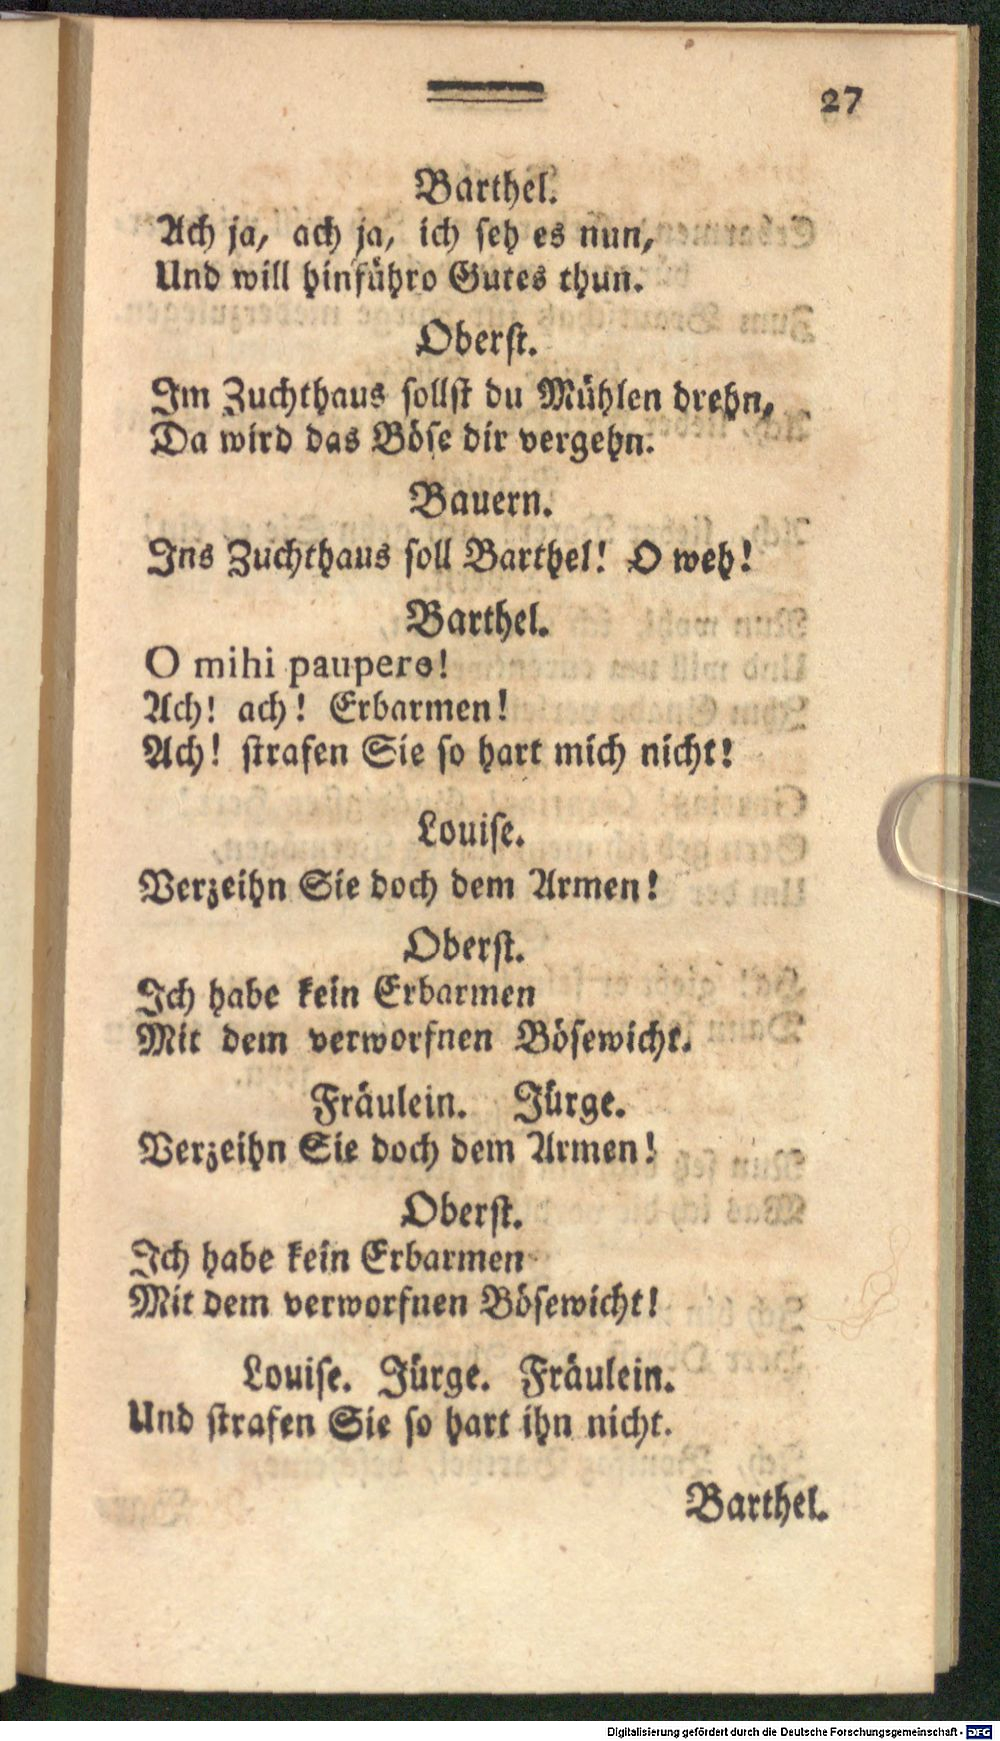 27
Barthel.
Ach ja, ach ja, ich seh es nun,
Und will hinführo Gutes thun.
Oberst.
Im Zuchthaus sollst du Mühlen drehn,
Da wird das Böse dir vergehn.
Bauern.
Ins Zuchthaus soll Barthel! O weh!
Barthel.
O mihi paupere!
Ach! ach! Erbarmen!
Ach! strafen Sie so hart mich nicht!
Louise.
Verzeihn Sie doch dem Armen!
Oberst.
Ich habe kein Erbarmen
Mit dem verworfnen Bösewicht.
Fräulein. Jürge.
Verzeihn Sie doch dem Armen!
Oberst.
Ich habe kein Erbarmen
Mit dem verworfnen Bösewicht!
Louise. Jürge. Fräulein.
Und strafen Sie so hart ihn nicht.
Barthel.
Digitalisierung gefördert durch die Deutsche Forschungsgemeinschaft - DFG